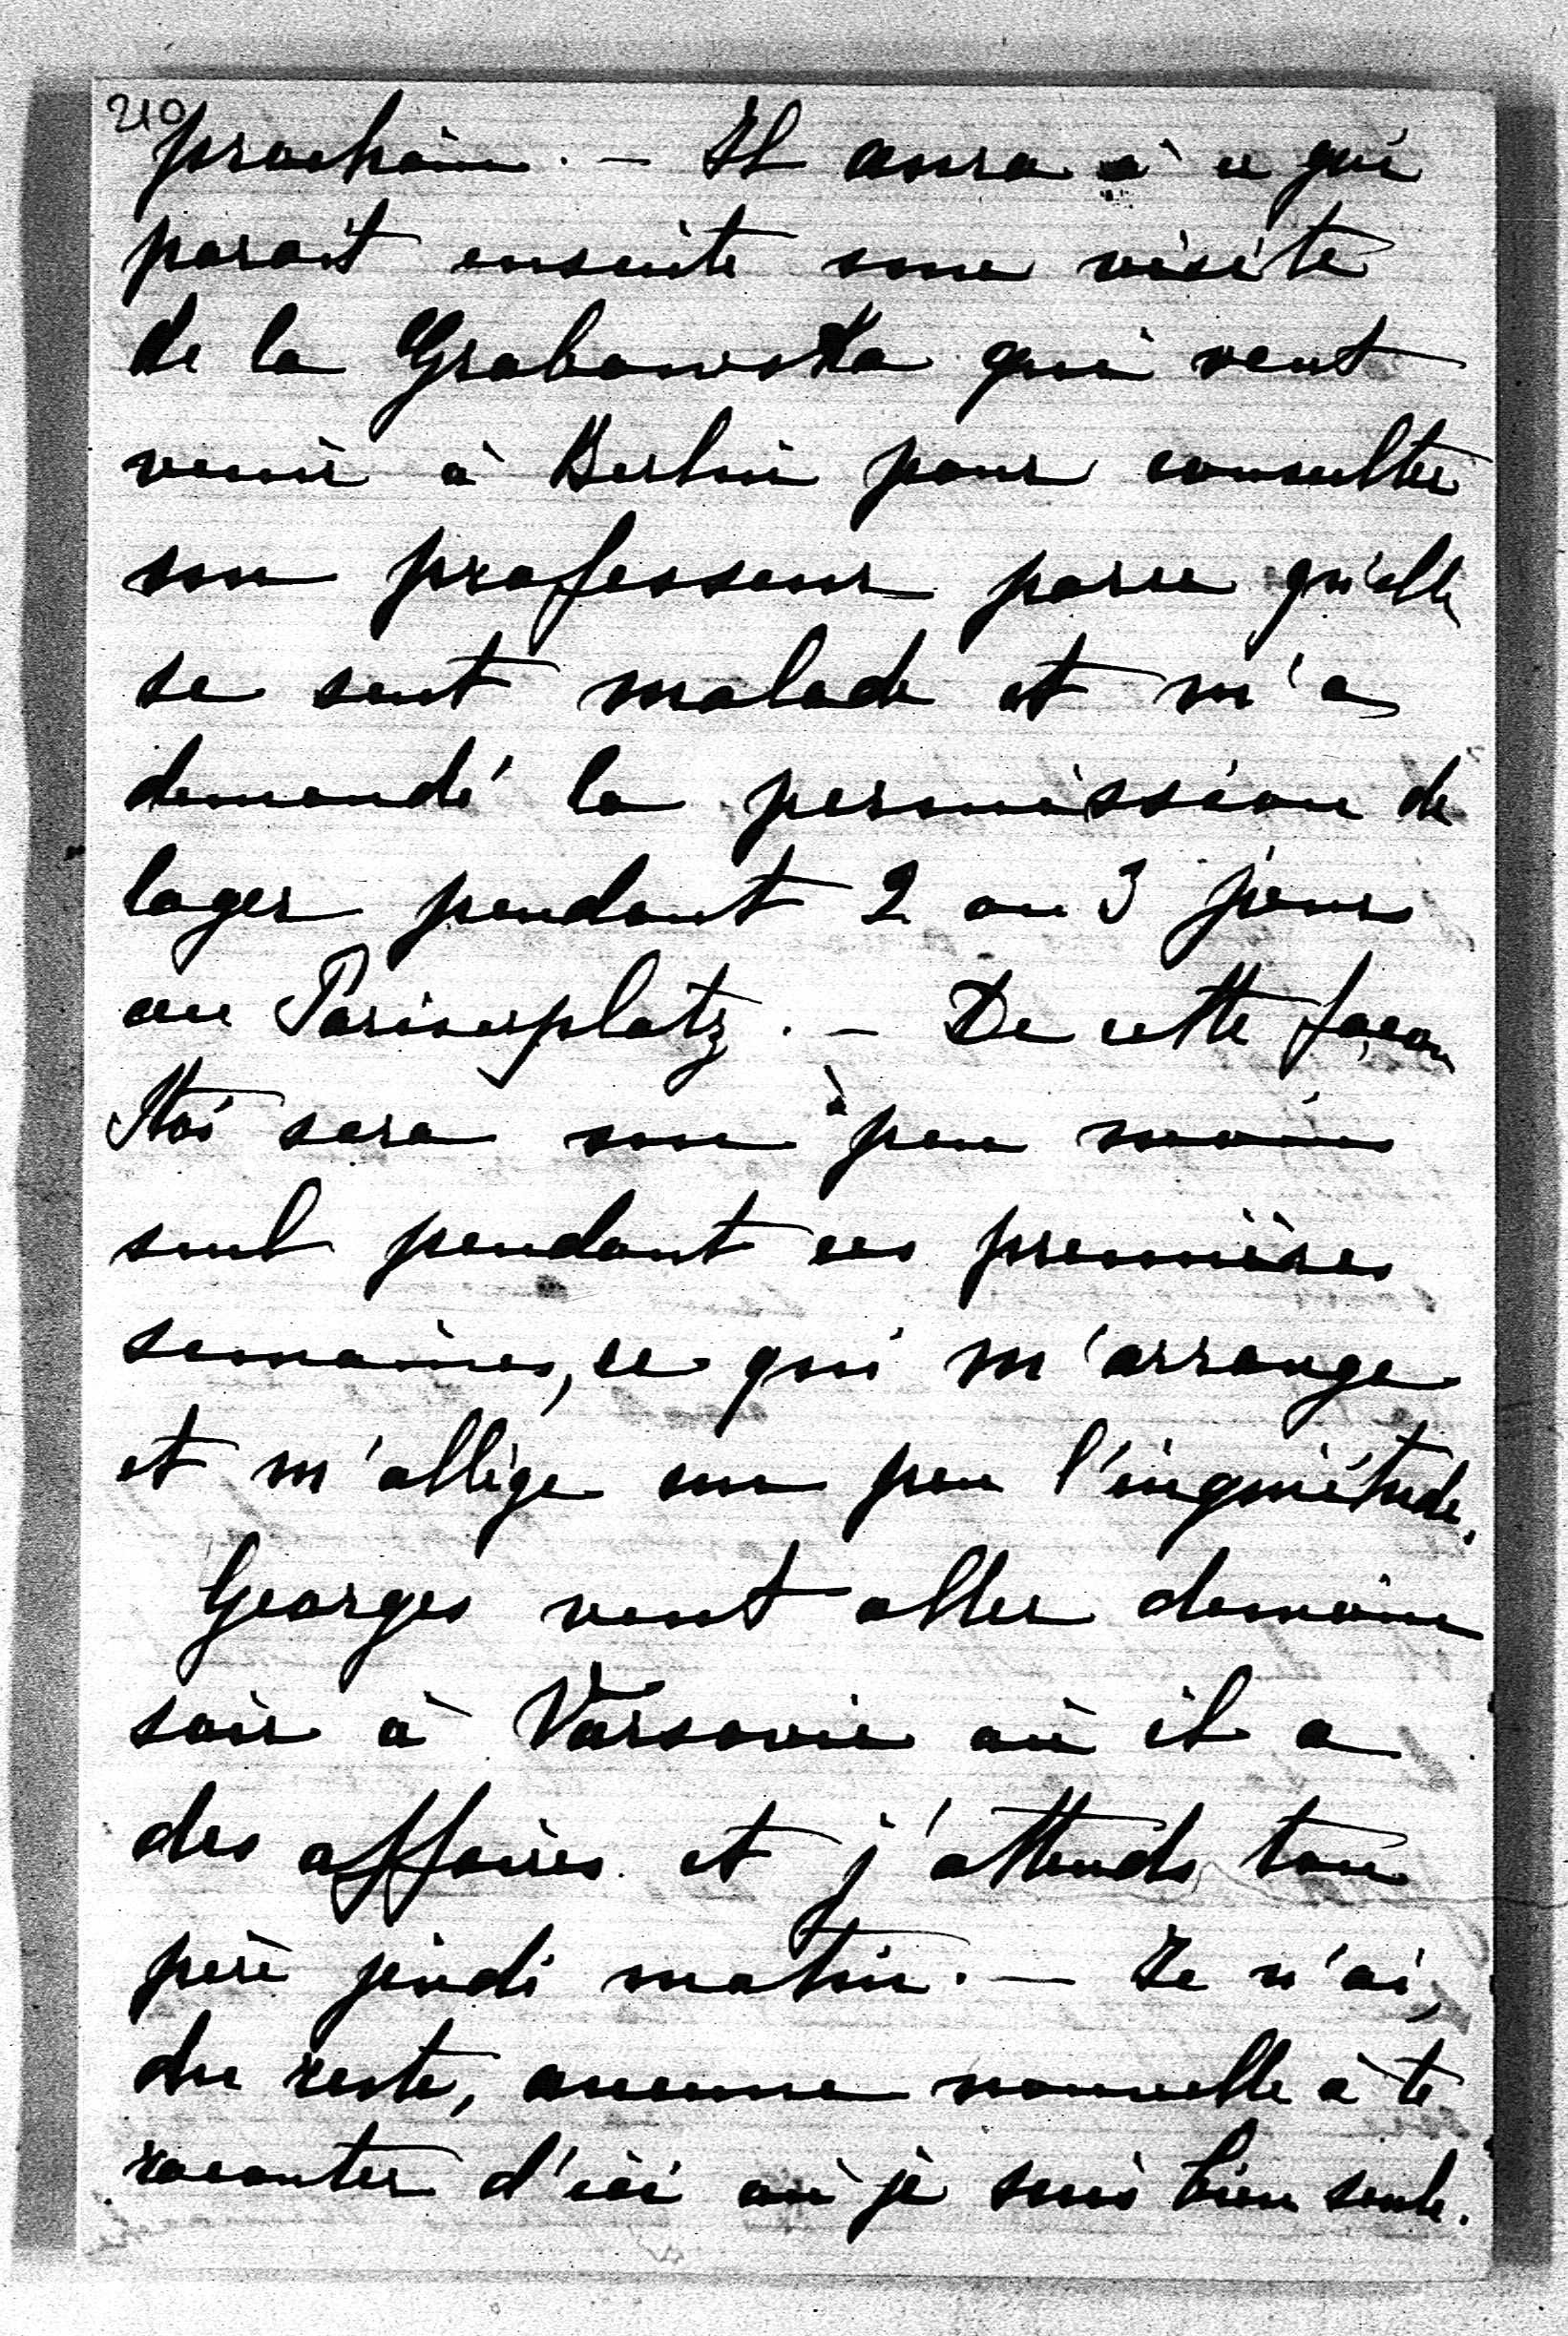 210
prochain. — Il aura à ce qui
parait ensuite une visite
de la Grabowska qui veut
venir à Berlin pour consulter
son professeur parce qu'elle
se sent malade et m'a
demandé la permission de
loger pendant 2 ou 3 jours
au Pariserplatz. — De cette façon
sera un peu moins
seul pendant ces premières
semaines, ce qui m'arrange
et m'allège un peu l'inquiétude.
Georges veut aller demain
soir à Varsovie où il a
des affaires et j'attends ton
père jeudi matin. — Je n'ai,
du reste, aucune nouvelle à te
raconter d'ici où je suis bien seule.